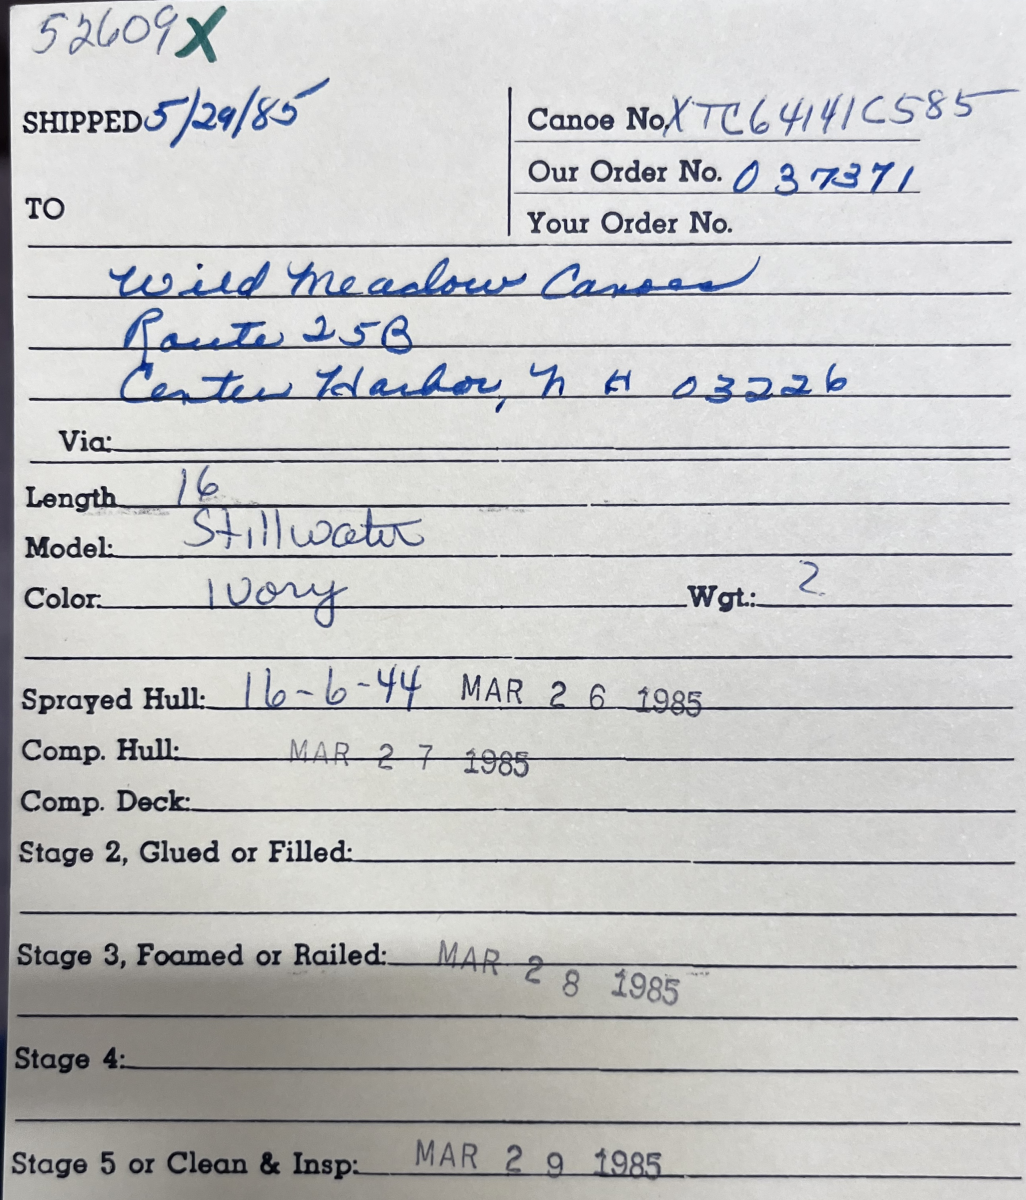 52609X
SHIPPED 5/29/85
Canoe No. XTC64141C585
Our Order No. 037371
Your Order No.
TO
Wild Meadow Canoes
Route 25B
Center Harbor, NH 03226
Via:
Length 16
Model: Stillwater
Color: Ivory Wgt.: 2
Sprayed Hull: 16-6-44 MAR 26 1985
Comp. Hull: MAR 27 1985
Comp. Deck:
Stage 2, Glued or Filled:
Stage 3, Foamed or Railed: MAR 28 1985
Stage 4:
Stage 5 or Clean & Insp: MAR 29 1985